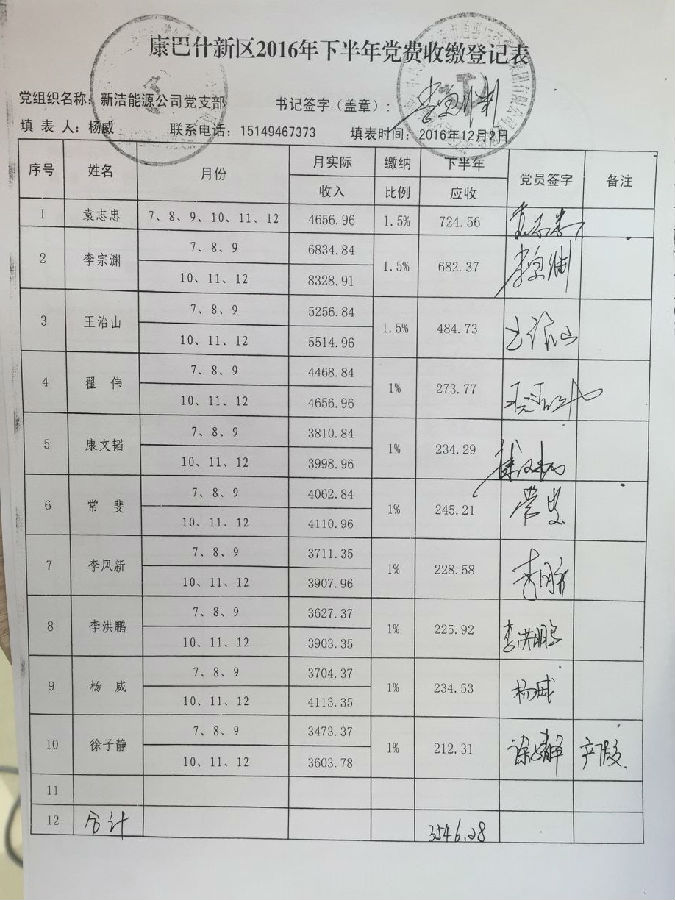 康巴什新区2016年下半年党费收缴登记表
党组织名称：新洁能源公司党支部 书记签字（盖章）：
填 表 人：杨威 联系电话：15149467373 填表时间：2016年12月2日
序号 姓名 月份 月实际收入 缴纳比例 下半年应收 党员签字 备注
1 袁志忠 7、8、9、10、11、12 4656.96 1.5% 724.56
2 李宗渊 7、8、9 6834.84 1.5% 682.37 李宗渊
10、11、12 8328.91
3 王治山 7、8、9 5256.84 1.5% 484.73 王治山
10、11、12 5514.96
4 翟 伟 7、8、9 4468.84 1% 273.77
10、11、12 4656.96
5 康文韬 7、8、9 3810.84 1% 234.29
10、11、12 3998.96
6 常 斐 7、8、9 4062.84 1% 245.21 常斐
10、11、12 4110.96
7 李凤新 7、8、9 3711.35 1% 228.58
10、11、12 3907.96
8 李洪鹏 7、8、9 3627.37 1% 225.92 李洪鹏
10、11、12 3903.35
9 杨 威 7、8、9 3704.37 1% 234.53 杨威
10、11、12 4113.35
10 徐子静 7、8、9 3473.37 1% 212.31 徐子静 产假
10、11、12 3603.78
11
12 合计 3546.28